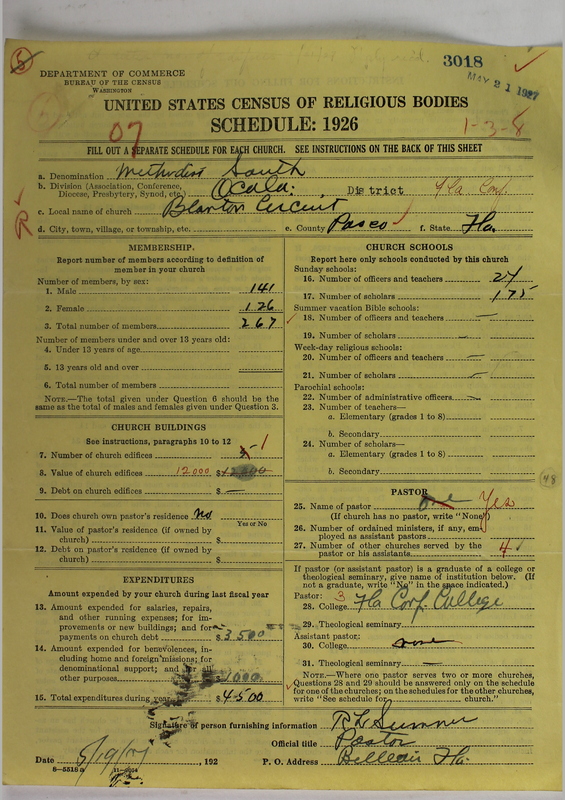 3018
MAY 21 1927
DEPARTMENT OF COMMERCE
BUREAU OF THE CENSUS
WASHINGTON
UNITED STATES CENSUS OF RELIGIOUS BODIES
07
SCHEDULE: 1926
1-3-8
FILL OUT A SEPARATE SCHEDULE FOR EACH CHURCH. SEE INSTRUCTIONS ON THE BACK OF THIS SHEET
a. Denomination Methodist South
b. Division (Association, Conference, Diocese, Presbytery, Synod, etc.) Ocala: District Fla Conf.
c. Local name of church Blanton Circuit
d. City, town, village, or township, etc. e. County Pasco f. State Fla.
MEMBERSHIP.
Report number of members according to definition of
member in your church
Number of members, by sex:
1. Male 141
2. Female 126
3. Total number of members 267
Number of members under and over 13 years old:
4. Under 13 years of age
5. 13 years old and over
6. Total number of members
NOTE.—The total given under Question 6 should be
same as the total of males and females given under Question 3.
CHURCH BUILDINGS
See instructions, paragraphs 10 to 12
7. Number of church edifices 1
8. Value of church edifices 12000 $12,000
9. Debt on church edifices $ —
10. Does church own pastor's residence? No
Yes or No
11. Value of pastor's residence (if owned by
church) $
12. Debt on pastor's residence (if owned by
church) $
EXPENDITURES
Amount expended by your church during last fiscal year
13. Amount expended for salaries, repairs,
and other running expenses; for im-
provements or new buildings; and for
payments on church debt $3500
14. Amount expended for benevolences, in-
cluding home and foreign missions; for
denominational support; and for all
other purposes $1000
15. Total expenditures during year $4500
CHURCH SCHOOLS
Report here only schools conducted by this church
Sunday schools:
16. Number of officers and teachers 27
17. Number of scholars 175
Summer vacation Bible schools:
18. Number of officers and teachers —
19. Number of scholars —
Week-day religious schools:
20. Number of officers and teachers —
21. Number of scholars —
Parochial schools:
22. Number of administrative officers —
23. Number of teachers—
a. Elementary (grades 1 to 8)
b. Secondary
24. Number of scholars—
a. Elementary (grades 1 to 8)
b. Secondary
48
PASTOR
25. Name of pastor one Yes
(If church has no pastor, write "None")
26. Number of ordained ministers, if any, em-
ployed as assistant pastors
27. Number of other churches served by the
pastor or his assistants 4
If pastor (or assistant pastor) is a graduate of a college or
theological seminary, give name of institution below. (If
not a graduate, write "No" in the space indicated.)
Pastor: 3
28. College Fla Conf. College
29. Theological seminary
Assistant pastor:
30. College none
31. Theological seminary —
NOTE.—Where one pastor serves two or more churches,
Questions 28 and 29 should be answered only on the schedule
for one of the churches; on the schedules for the other churches,
write "See schedule for church."
Signature of person furnishing information R L Sumner
Official title Pastor
Date 5/19/27, 192 P. O. Address Belleair Fla.
8—5518a 11—9604